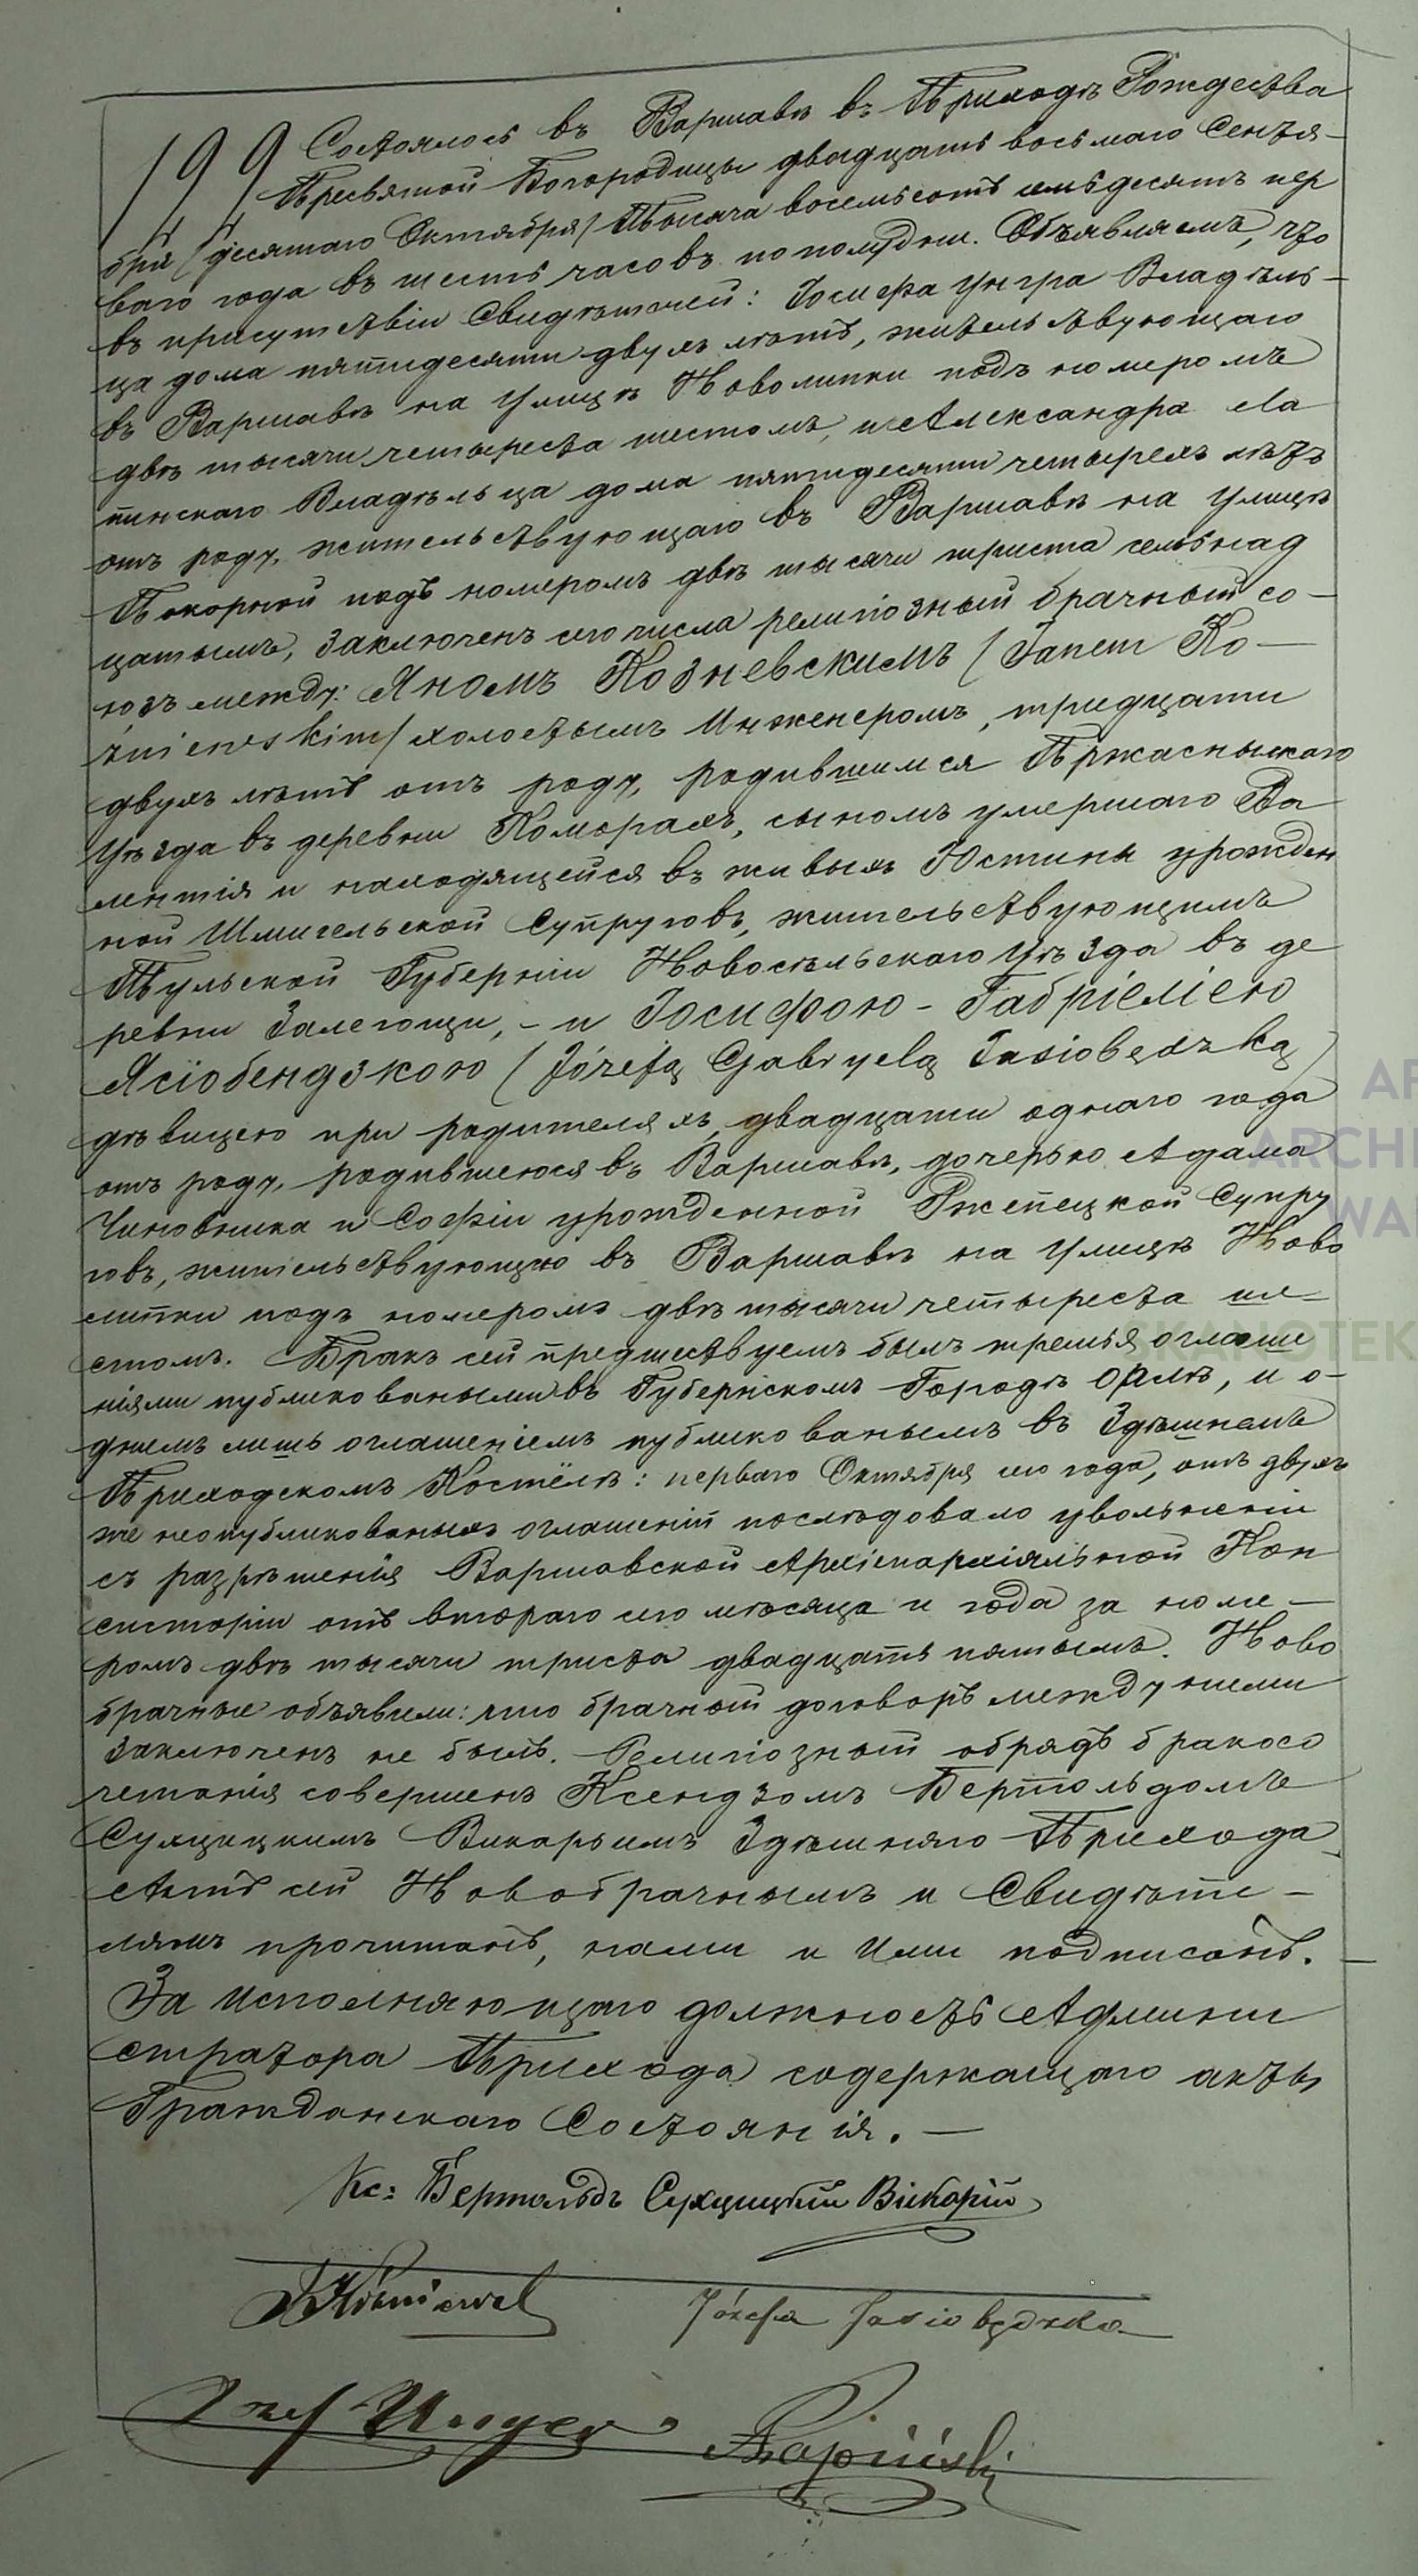 199 Состоялось въ Варшавѣ въ Приходѣ Рождества
Пресвятой Богородицы двадцать восьмаго Сентя-
бря /десятаго Октября/ Тысяча восемьсотъ семьдесятъ пер
ваго года въ шесть часовъ пополудни. Объявляемъ, что
въ присутствіи Свидѣтелей: Іосифа Унгра Владѣль-
ца дома пятидесяти двухъ лѣтъ, жительствующаго
въ Варшавѣ на Улицѣ Новолипки подъ номеромъ
двѣ тысячи четыреста шестомъ, и Александра Ла
пинскаго Владѣльца дома пятидесяти четырехъ лѣтъ
отъ роду, жительствующаго въ Варшавѣ на Улицѣ
Покорной подъ номеромъ двѣ тысячи триста семьнад
цатымъ, заключенъ сего числа религіозный брачный со-
юзъ между: Яномъ Козневскимъ /Janem Ko-
źniewskim/ холостымъ Инженеромъ, тридцати
двухъ лѣтъ отъ роду, родившимся Пржаснышскаго
Уѣзда въ деревни Коморахъ, сыномъ умершаго Ва
лентія и находящейся въ живыхъ Юстины урожден
ной Шмигельской Супруговъ, жительствующимъ
Тульской Губерніи Новосѣльскаго Уѣзда въ де
ревни Залегощи, - и Іосифою - Габріеліею
Ясіобендзкою (Józefą Gabryelą Jasiobędzką)
дѣвицею при родителяхъ, двадцати одного года
отъ роду, родившеюся въ Варшавѣ, дочерью Адама
Чиновника и Софіи урожденной Ржепецкой Супру
говъ, жительствующею въ Варшавѣ на Улицѣ Ново
липки подъ номеромъ двѣ тысячи четыреста ше-
стомъ. Бракъ сей предшествуемъ былъ тремья оглаше
ніями публиковаными въ Губернскомъ Городѣ Орлѣ, и о-
днимъ лишь оглашеніемъ публикованымъ въ Здѣшнемъ
Приходскомъ Костёлѣ: перваго Октября сего года, отъ двухъ
же неопубликованыхъ оглашеній послѣдовало увольненіи
съ разрѣшенія Варшавской Архіепархіяльной Кон
систоріи отъ втораго сего мѣсяца и года за номе-
ромъ двѣ тысячи триста двадцать пятымъ. Ново
брачные объявили: что брачный договоръ между ними
заключенъ не былъ. Религіозный обрядъ бракосо
четанія совершенъ Ксендзомъ Бертольдомъ
Сухцицкимъ Викарымъ Здѣшняго Прихода
Актъ сей Новобрачнымъ и Свидѣте-
лямъ прочитанъ, нами и Ими подписанъ. -
За Исполняющаго должность Админи
стратора Прихода содержащаго акты
Гражданскаго Состоянія. -
Кс: Бертольдъ Сухцицкій Викарій
JKoźniewski
Józefa Jasiobędzka
Józef Unger
ALapiński